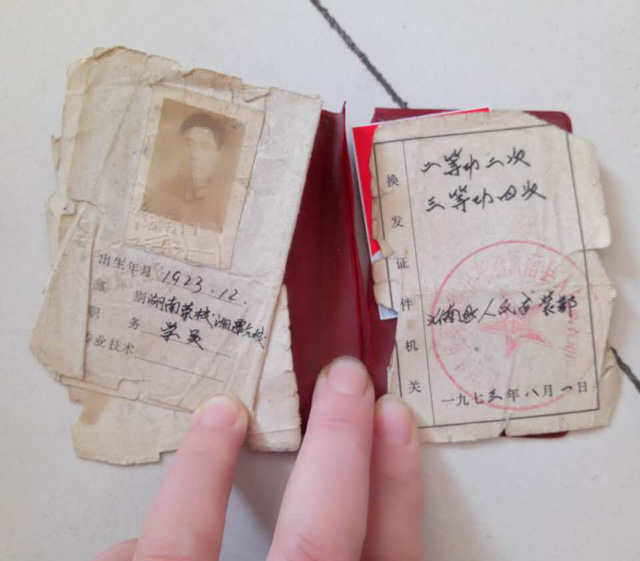 出生年月 1923.12.
部别 湖南荣校湘潭分校
职务 学员
专业技术
二等功二次
三等功四次
换发证件机关
沂南县人民武装部
一九七三年八月一日